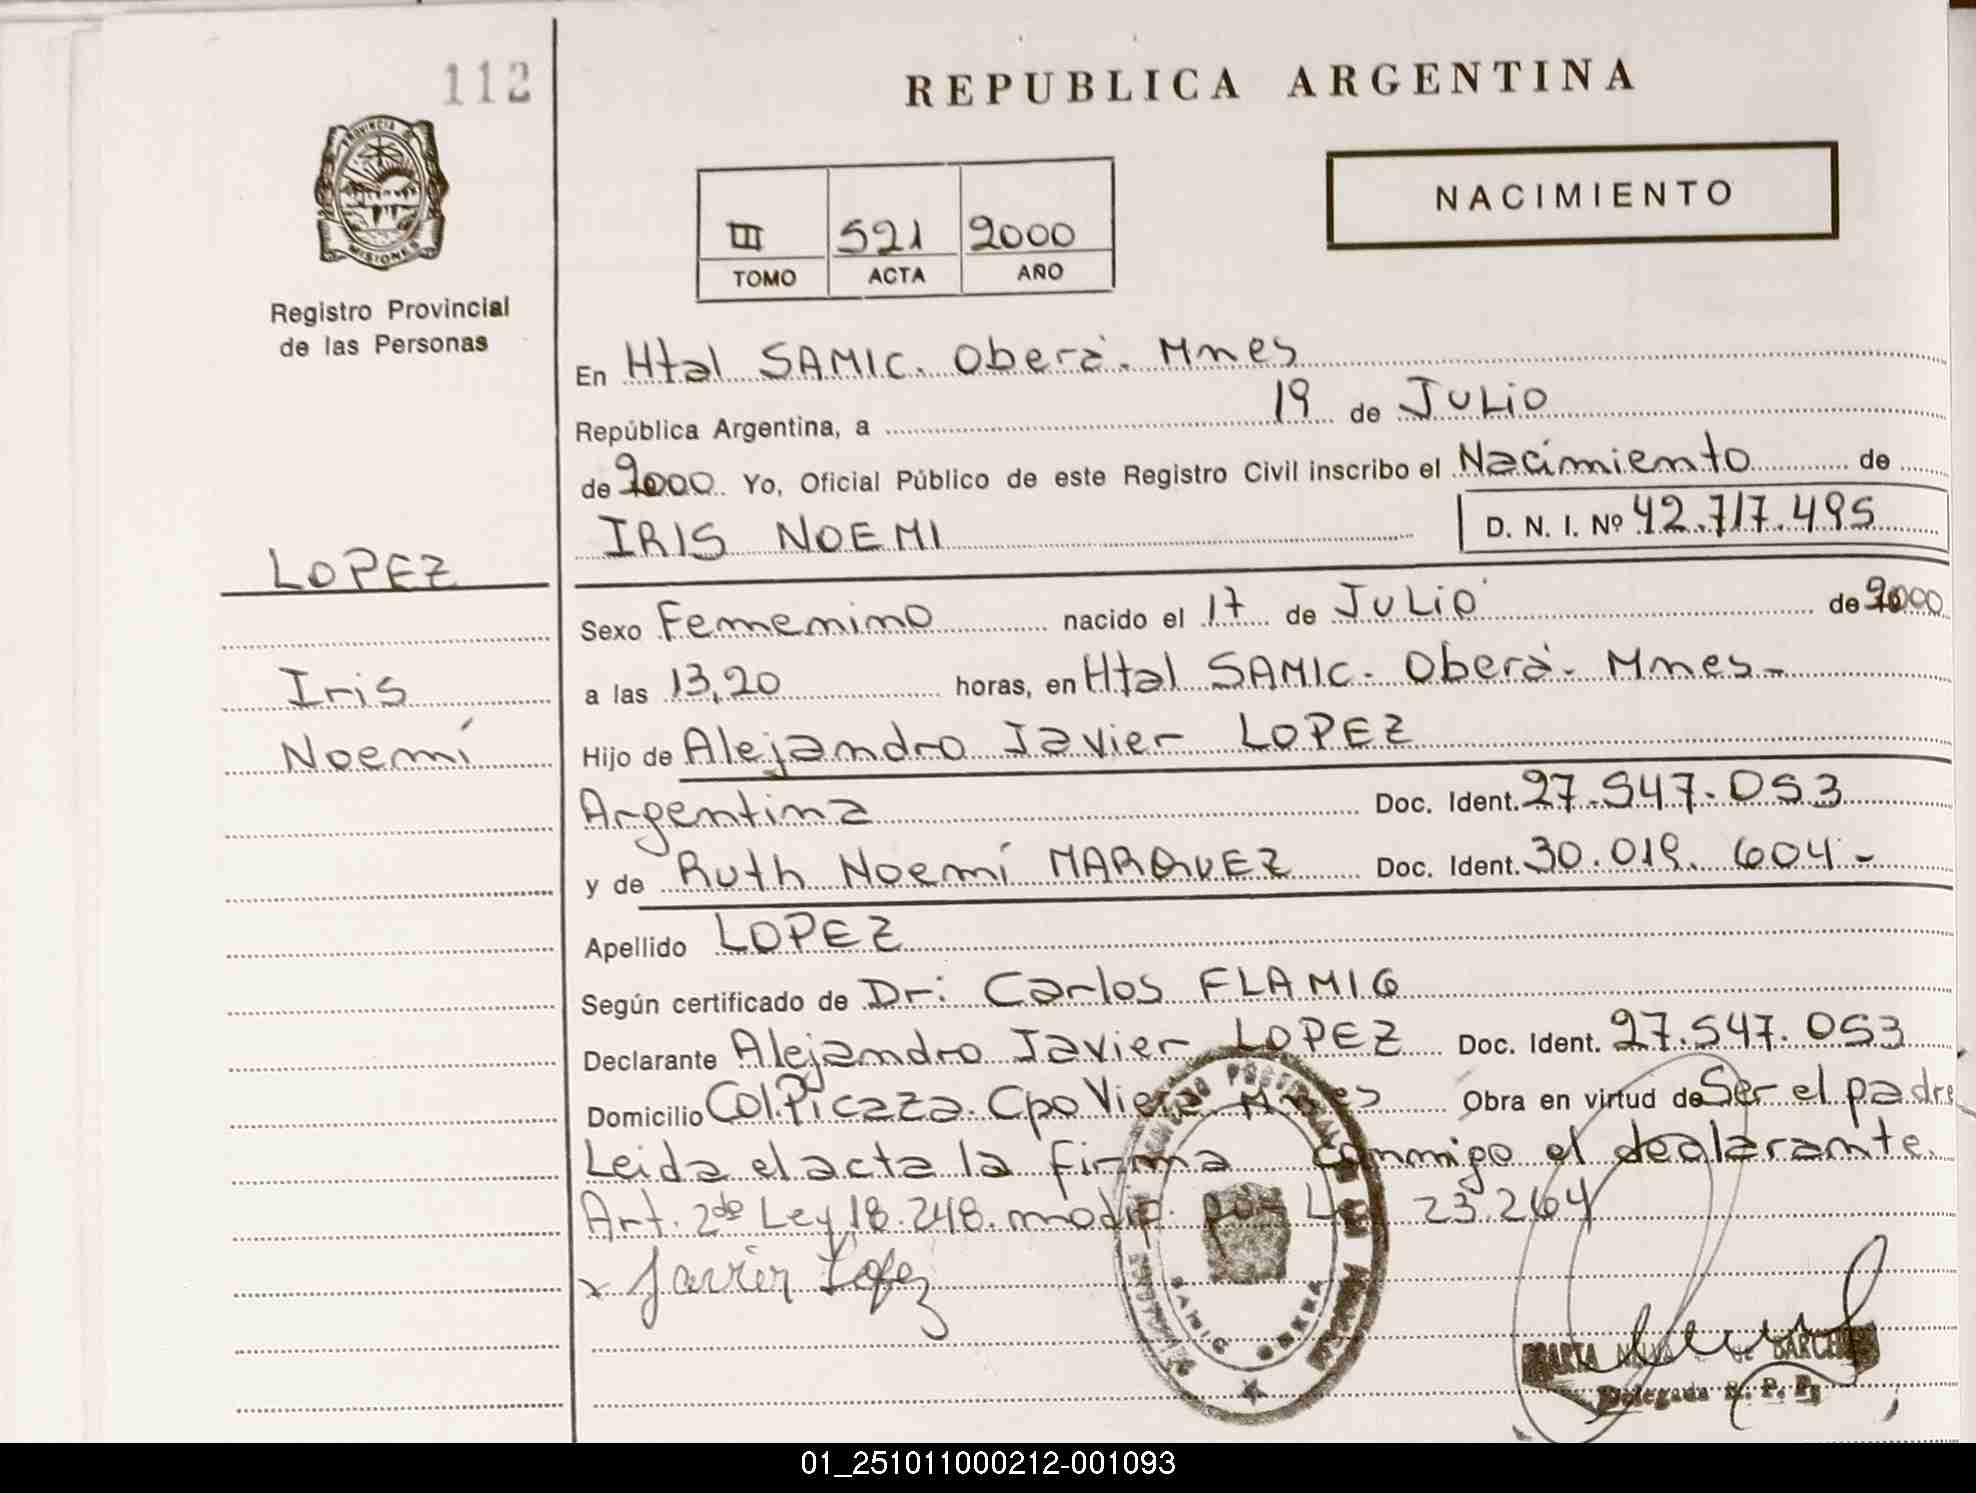 112
REPUBLICA ARGENTINA
PROVINCIA DE
MISIONES
NACIMIENTO
III 521 2000
TOMO ACTA AÑO
Registro Provincial
de las Personas
En Htal SAMIC. Oberá. Mnes
República Argentina, a 19 de JULIO
de 2000 Yo, Oficial Público de este Registro Civil inscribo el Nacimiento de
IRIS NOEMI D. N. I. Nº 42.717.495
LOPEZ
Sexo Femenino nacido el 17 de JULIO de 2000
Iris
a las 13,20 horas, en Htal SAMIC. Oberá. Mnes-
Noemí
Hijo de Alejandro Javier LOPEZ
Argentina Doc. Ident. 27.547.053
y de Ruth Noemí MARQUEZ Doc. Ident. 30.019.604-
Apellido LOPEZ
Según certificado de Dr: Carlos FLAMIG
Declarante Alejandro Javier LOPEZ Doc. Ident. 27.547.053
Domicilio Col.Picaza. Cpo Viera Mnes Obra en virtud de Ser el padre
Leida el acta la firma conmigo el declarante.
Art. 2do Ley 18.248. modif. por Ley 23.264
x Javier Lopez
SAMIC OBERA
DE BARCE
Delegada R. P. P.
01_251011000212-001093